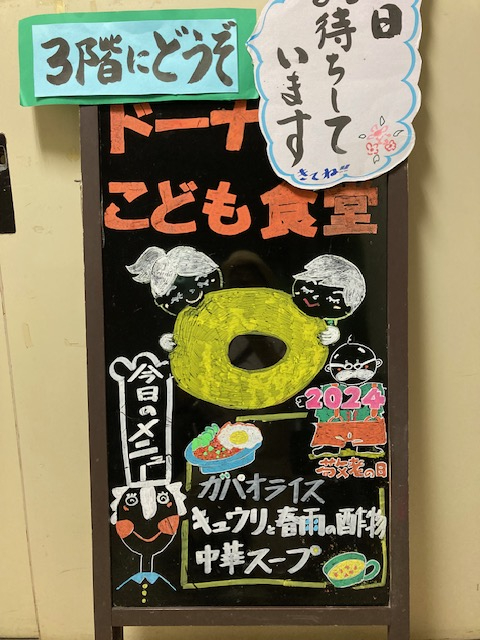 3階にどうぞ
日
待ちして
います
さくね"
ドーナ
こども食堂
今日のメニュー
2024
敬老の日
ガパオライス
キュウリと春雨の酢物
中華スープ